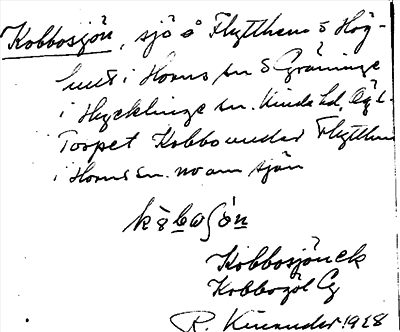 Kobbosjön, sjö å Flytthem o Hög-
hult i Horns sn o Gräninge
i Hycklinge sn. Kinda hd, Ögl.
Torpet Kobbo under Flytthem
i Horns sn. no om sjön
Kobbosjön ek
Kobbogöl Cg
R. Kinander 1928